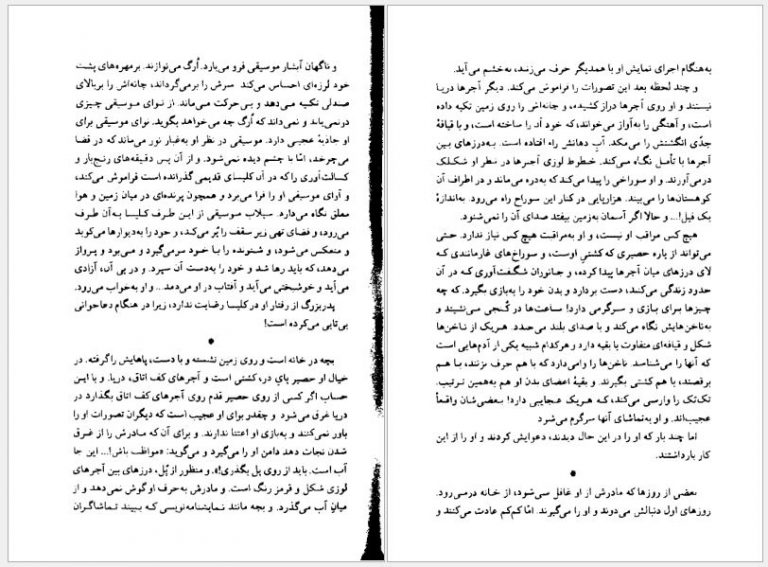 و ناگهان آبشار موسیقی فرو می‌بارد. اُرگ می‌نوازند. بر مهره‌های پشت
خود لرزه‌ای احساس می‌کند سرش را برمی‌گرداند، چانه‌اش را بر بالای
صندلی تکیه می‌دهد و بی‌حرکت می‌ماند. از نوای موسیقی چیزی
درنمی‌یابد و نمی‌داند که اُرگ چه می‌خواهد بگوید. نوای موسیقی برای
او جاذبهٔ عجیبی دارد. موسیقی در نظر او به‌غبار نور می‌ماند که در فضا
می‌چرخد، امّا با چشم دیده نمی‌شود. و از آن پس دقیقه‌های رنج‌بار و
کسالت‌آوری را که در آن کلیسای قدیمی گذرانده است فراموش می‌کند،
و آوای موسیقی او را فرا می‌برد و همچون پرنده‌ای در میان زمین و هوا
معلق نگاه می‌دارد. سیلاب موسیقی از این طرف کلیسا به‌آن طرف
می‌رود، و فضای تهی زیر سقف را پُر می‌کند، و خود را به‌دیوارها می‌کوبد
و منعکس می‌شود، و شنونده را با خود سرمی‌گیرد و می‌برد و پرواز
می‌دهد، که باید رها شد و خود را به‌دست آن سپرد. و در پی آن، آزادی
می‌آید و خوشبختی می‌آید و آفتاب در او می‌دمد... و او به‌خواب می‌رود.
پدربزرگ از رفتار او در کلیسا رضایت ندارد، زیرا در هنگام دعاخوانی
بی‌تابی می‌کرده است!
•
بچه در خانه است و روی زمین نشسته و با دست، پاهایش را گرفته. در
خیال او حصیر پای در، کشتی است و آجرهای کف اتاق، دریا. و با این
حساب اگر کسی از روی حصیر قدم روی آجرهای کف اتاق بگذارد در
دریا غرق می‌شود. و چقدر برای او عجیب است که دیگران تصورات او را
باور نمی‌کنند و به‌بازی او اعتنا ندارند. و برای آن که مادرش را از غرق
شدن نجات دهد دامن او را می‌گیرد و می‌گوید: «مواظب باش!... این جا
آب است. باید از روی پل بگذری!»، و منظور از پُل، درزهای بین آجرهای
لوزی شکل و قرمز رنگ است. و مادرش به‌حرف او گوش نمی‌دهد و از
میان آب می‌گذرد. و بچه مانند نمایشنامه‌نویسی که ببیند تماشاگران
به‌هنگام اجرای نمایش او با همدیگر حرف می‌زنند، به‌خشم می‌آید.
و چند لحظه بعد این تصورات را فراموش می‌کند. دیگر آجرها دریا
نیستند و او روی آجرها دراز کشیده، و چانه‌اش را روی زمین تکیه داده
است، و آهنگی را به‌آواز می‌خواند، که خود آن را ساخته است، و با قیافهٔ
جدّی انگشتش را می‌مکد. آب دهانش راه افتاده است. به‌درزهای بین
آجرها با تأمل نگاه می‌کند. خطوط لوزی آجرها در نظر او شکلک
درمی‌آورند. و او سوراخی را پیدا می‌کند که به‌دره می‌ماند و در اطراف آن
کوهستان‌ها را می‌بیند. هزارپایی در کنار این سوراخ راه می‌رود. به‌اندازهٔ
یک فیل!... و حالا اگر آسمان به‌زمین بیفتد صدای آن را نمی‌شنود.
هیچ کس مراقب او نیست، و او به‌مراقبت هیچ کس نیاز ندارد. حتی
می‌تواند از پاره حصیری که کشتی اوست، و سوراخ‌های غارمانندی که
لای درزهای میان آجرها پیدا کرده، و جانوران شگفت‌آوری که در آن
حدود زندگی می‌کنند، دست بردارد و بدن خود را به‌بازی بگیرد. که چه
چیزها برای بازی و سرگرمی دارد! ساعت‌ها در کُنجی می‌نشیند و
به‌ناخن‌هایش نگاه می‌کند و با صدای بلند می‌خندد. هریک از ناخن‌ها
شکل و قیافه‌ای متفاوت با بقیه دارد و هرکدام شبیه یکی از آدم‌هایی است
که آنها را می‌شناسد. ناخن‌ها را وامی‌دارد که با هم حرف بزنند، با هم
برقصند، با هم کشتی بگیرند. و بقیهٔ اعضای بدن او هم به‌همین ترتیب.
تک‌تک را وارسی می‌کند، که هریک عجایبی دارد! بعضی‌شان واقعاً
عجیب‌اند. و او به‌تماشای آنها سرگرم می‌شود
اما چند بار که او را در این حال دیدند، دعوایش کردند و او را از این
کار بازداشتند.
•
بعضی از روزها که مادرش از او غافل می‌شود، از خانه درمی‌رود.
روزهای اول دنبالش می‌دوند و او را می‌گیرند. امّا کم‌کم عادت می‌کنند و